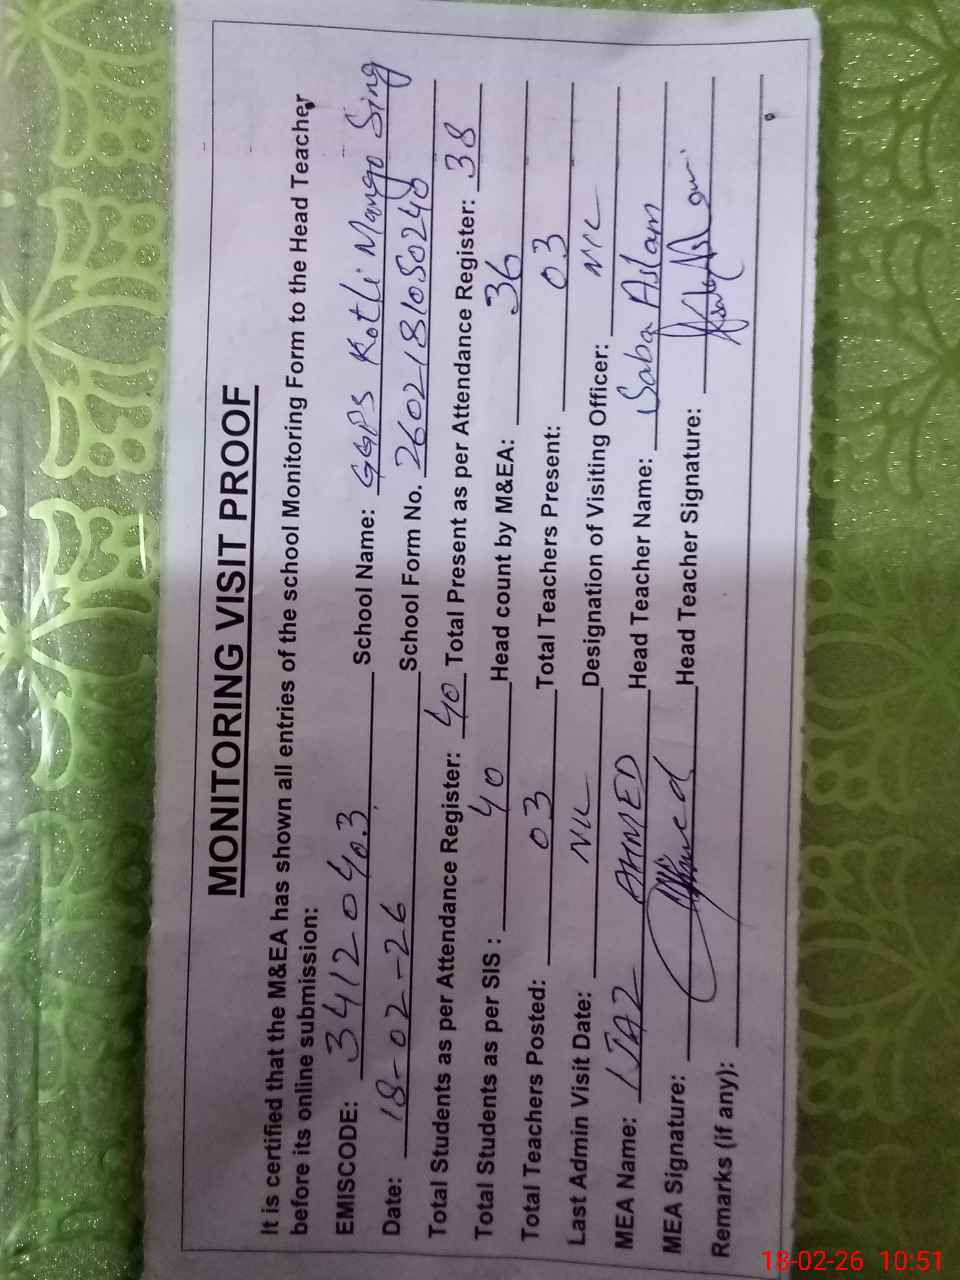 MONITORING VISIT PROOF
It is certified that the M&EA has shown all entries of the school Monitoring Form to the Head Teacher
before its online submission:
EMISCODE: 34120403 School Name: GGPS Kotli Mango Sing
Date: 18-02-26 School Form No. 2602181050240
Total Students as per Attendance Register: 40 Total Present as per Attendance Register: 38
Total Students as per SIS : 40 Head count by M&EA: 36
Total Teachers Posted: 03 Total Teachers Present: 03
Last Admin Visit Date: NIL Designation of Visiting Officer: NIL
MEA Name: IJAZ AHMED Head Teacher Name: Saba Aslam
MEA Signature: Head Teacher Signature:
Remarks (if any):
18-02-26 10:51